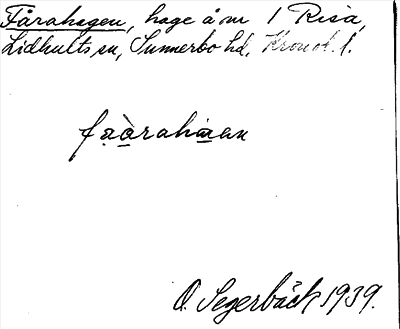 Fårahagen, hage å nr 1 Risa,
Lidhults sn, Sunnerbo hd, Kronob. l.
O. Segerbäck 1939.